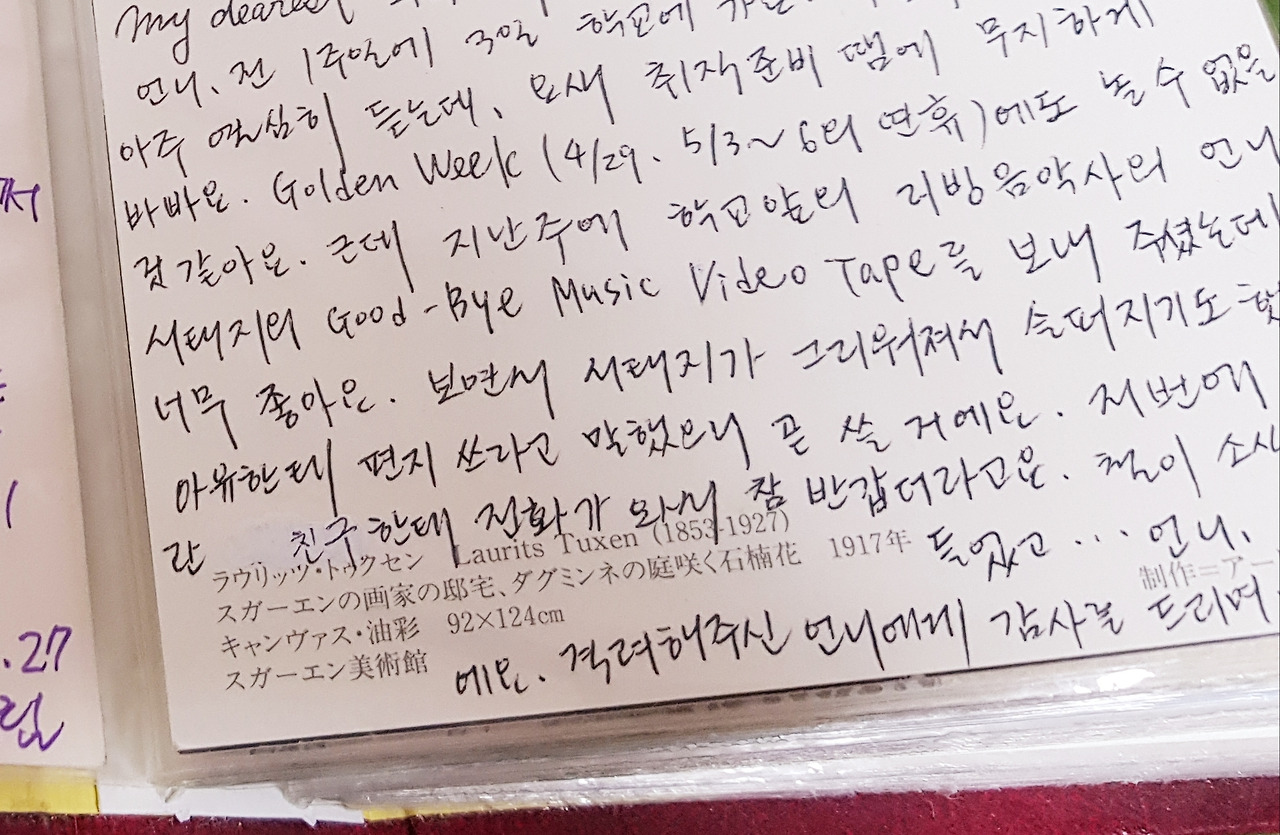 My dearest
언니, 전 1주일에 3일 학교에
아주 열심히 듣는데, 요새 취직준비 땜에 무지하게
바빠요. Golden Week (4/29, 5/3~6의 연휴)에도 놀 수 없을
것 같아요. 근데 지난주에 학교앞의 러빙음악사의 언니
서태지의 Good-Bye Music Video Tape를 보내 주셨는데
너무 좋아요. 보면서 서태지가 그리워져서 슬퍼지기도 했
아유한테 편지 쓰라고 말했으니 곧 쓸 거에요. 저번에
란 친구한테 전화가 와서 참 반갑더라고요. 철이 소시
듣었고 ... 언니,
에요. 격려해주신 언니에게 감사를 드리며
ラウリッツ・トゥクセン Laurits Tuxen (1853-1927)
スガーエンの画家の邸宅、ダグミンネの庭咲く石楠花 1917年
キャンヴァス・油彩 92×124cm
スガーエン美術館
制作=アー
써
.27